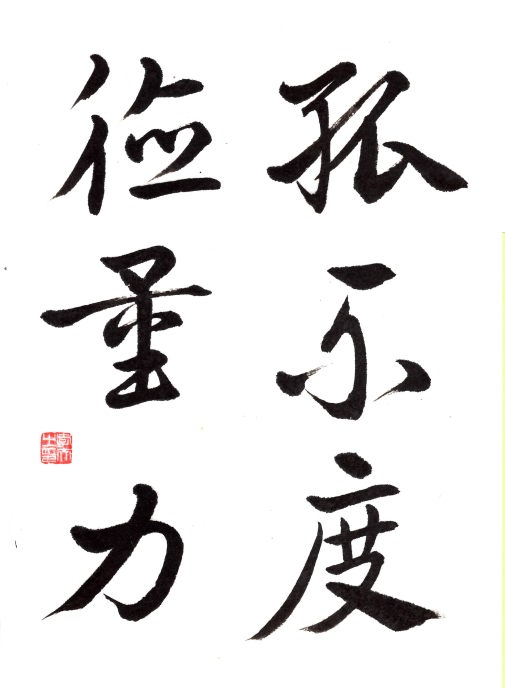 孤不度
德量力